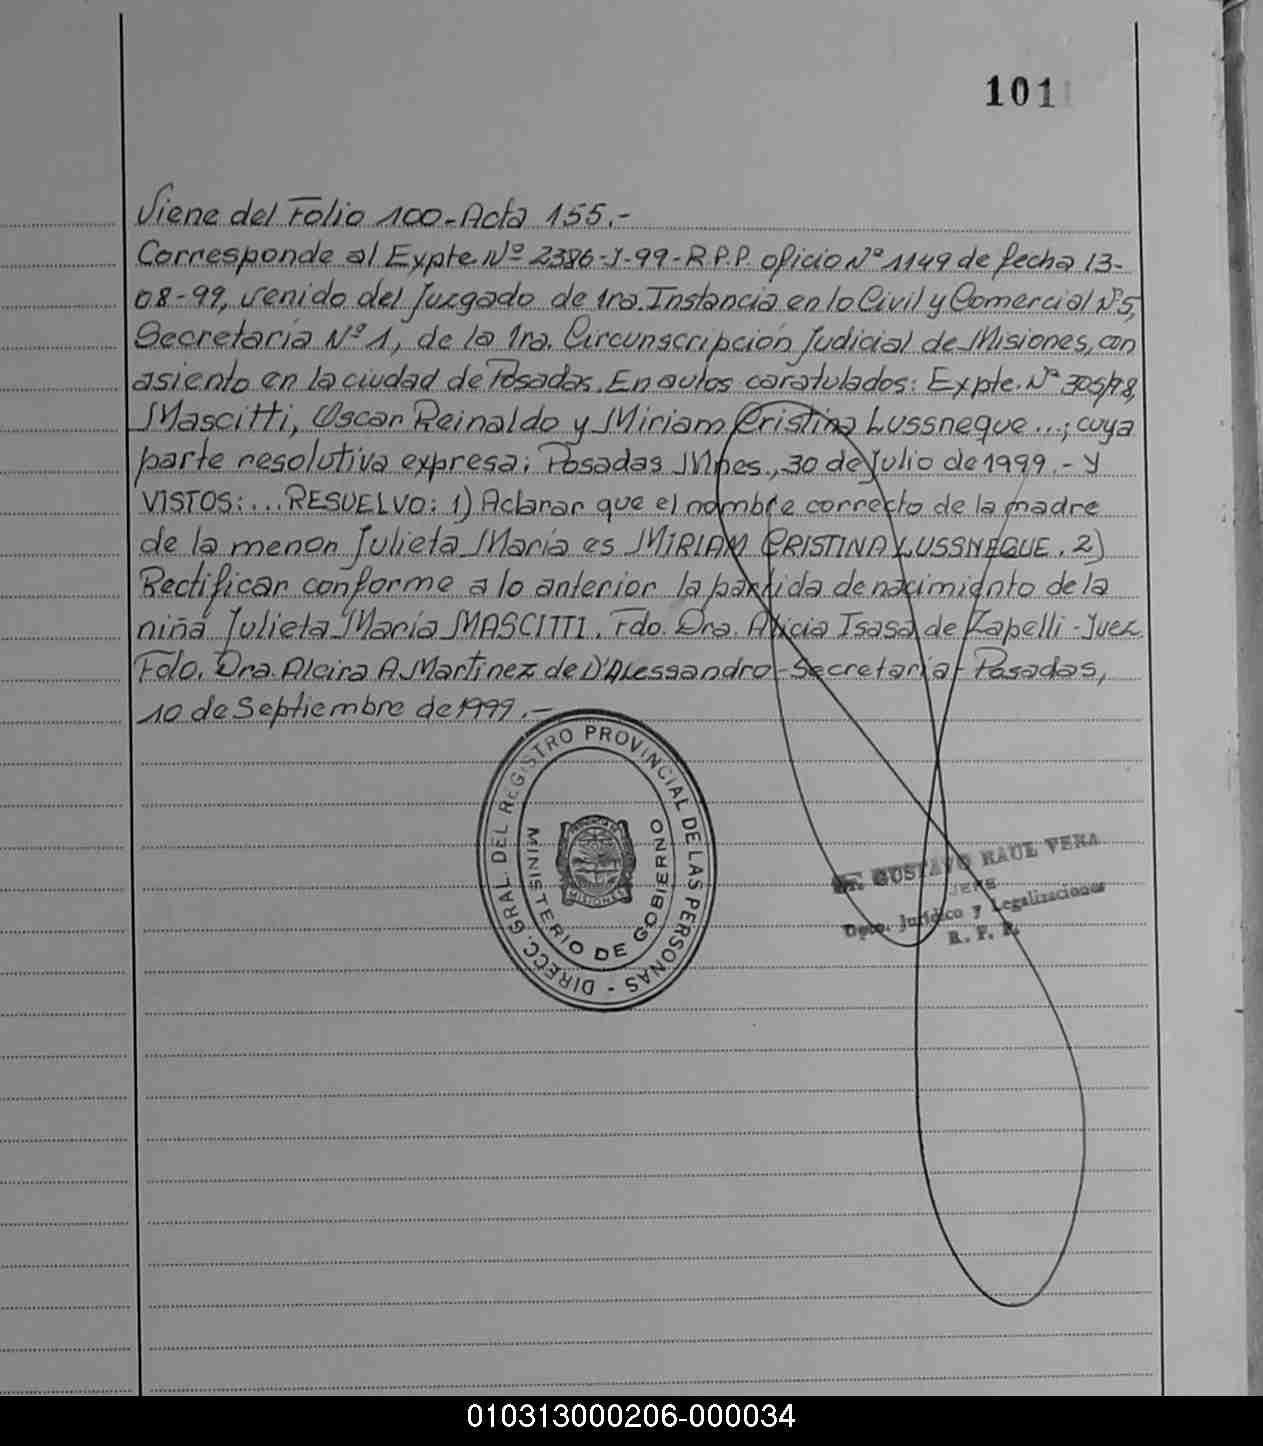 101
Viene del Folio 100-Acta 155.-
Corresponde al Expte Nº 2386-J-99-R.P.P. oficio Nº 1149 de fecha 13-
08-99, venido del Juzgado de 1ra. Instancia en lo Civil y Comercial Nº5,
Secretaría Nº 1, de la 1ra. Circunscripción Judicial de Misiones, con
asiento en la ciudad de Posadas. En autos caratulados: Expte. Nº 305/98,
Mascitti, Oscar Reinaldo y Miriam Cristina Lussneque...; cuya
parte resolutiva expresa: Posadas Mnes., 30 de Julio de 1999.- Y
VISTOS:...RESUELVO: 1) Aclarar que el nombre correcto de la madre
de la menor Julieta María es MIRIAM CRISTINA LUSSNEQUE. 2)
Rectificar conforme a lo anterior la partida de nacimiento de la
niña Julieta María MASCITTI. Fdo. Dra. Alicia Isasa de Zapelli-Juez.
Fdo. Dra. Alcira A. Martinez de D'Alessandro-Secretaria-Posadas,
10 de Septiembre de 1999.-
DIRECC. GRAL. DEL REGISTRO PROVINCIAL DE LAS PERSONAS -
MINISTERIO DE GOBIERNO
MISIONES
GUSTAVO RAUL VERA
JEFE
Dpto. Jurídico y Legalizaciones
R. P. P.
010313000206-000034